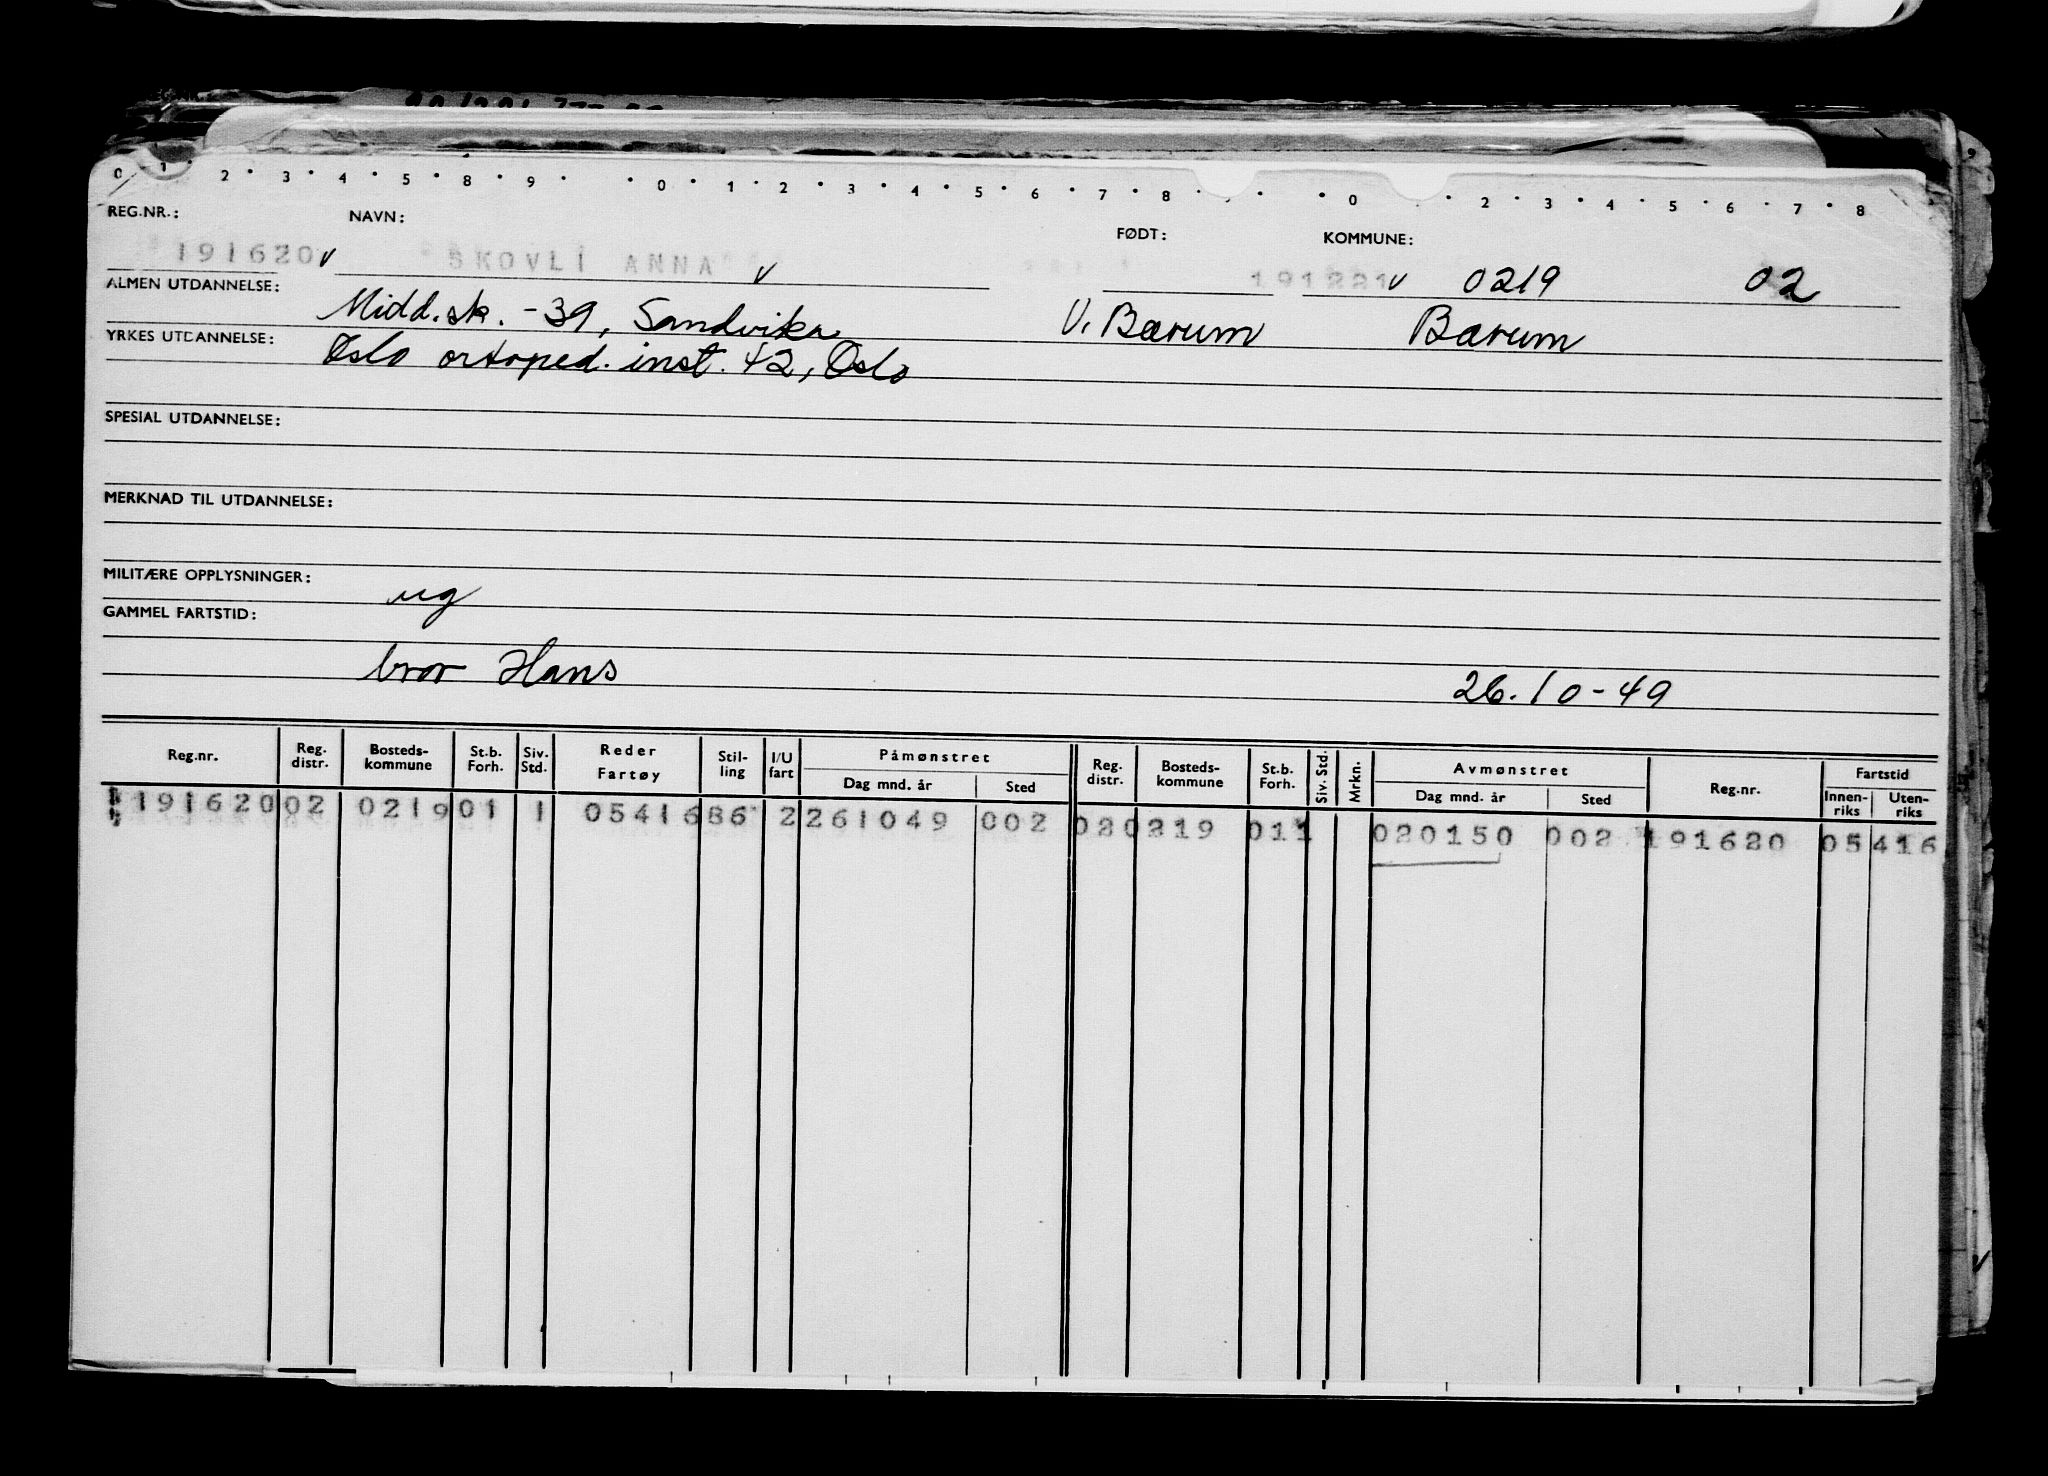 0 1 2 • 3 • 4 • 5 • 8 • 9 • • 0 • 1 • 2 • 3 • 4 • 5 • 6 • 7 • 8 • • • 0 • 2 • 3 • 4 • 5 • 6 • 7 • 8
REG.NR.: NAVN: FØDT: KOMMUNE:
191620 v SKOVLI ANNA v 191221 v 0219 02
ALMEN UTDANNELSE: Midd.sk. -39, Sandvika V. Bærum Bærum
YRKES UTDANNELSE: Oslo ortoped. inst. 42, Oslo
SPESIAL UTDANNELSE:
MERKNAD TIL UTDANNELSE:
MILITÆRE OPPLYSNINGER: ug
GAMMEL FARTSTID:
bror Hans 26.10-49
Reg.nr. Reg. distr. Bosteds-kommune St.b. Forh. Siv. Std. Reder Fartøy Stil-ling I/U fart Påmønstret Dag mnd. år Sted Reg. distr. Bosteds-kommune St.b. Forh. Siv. Std. Mrkn. Avmønstret Dag mnd. år Sted Reg.nr. Fartstid Innen-riks Uten-riks
191620 02 0219 01 1 05416 86 2 261049 002 02 0219 01 1 020150 002 191620 05416